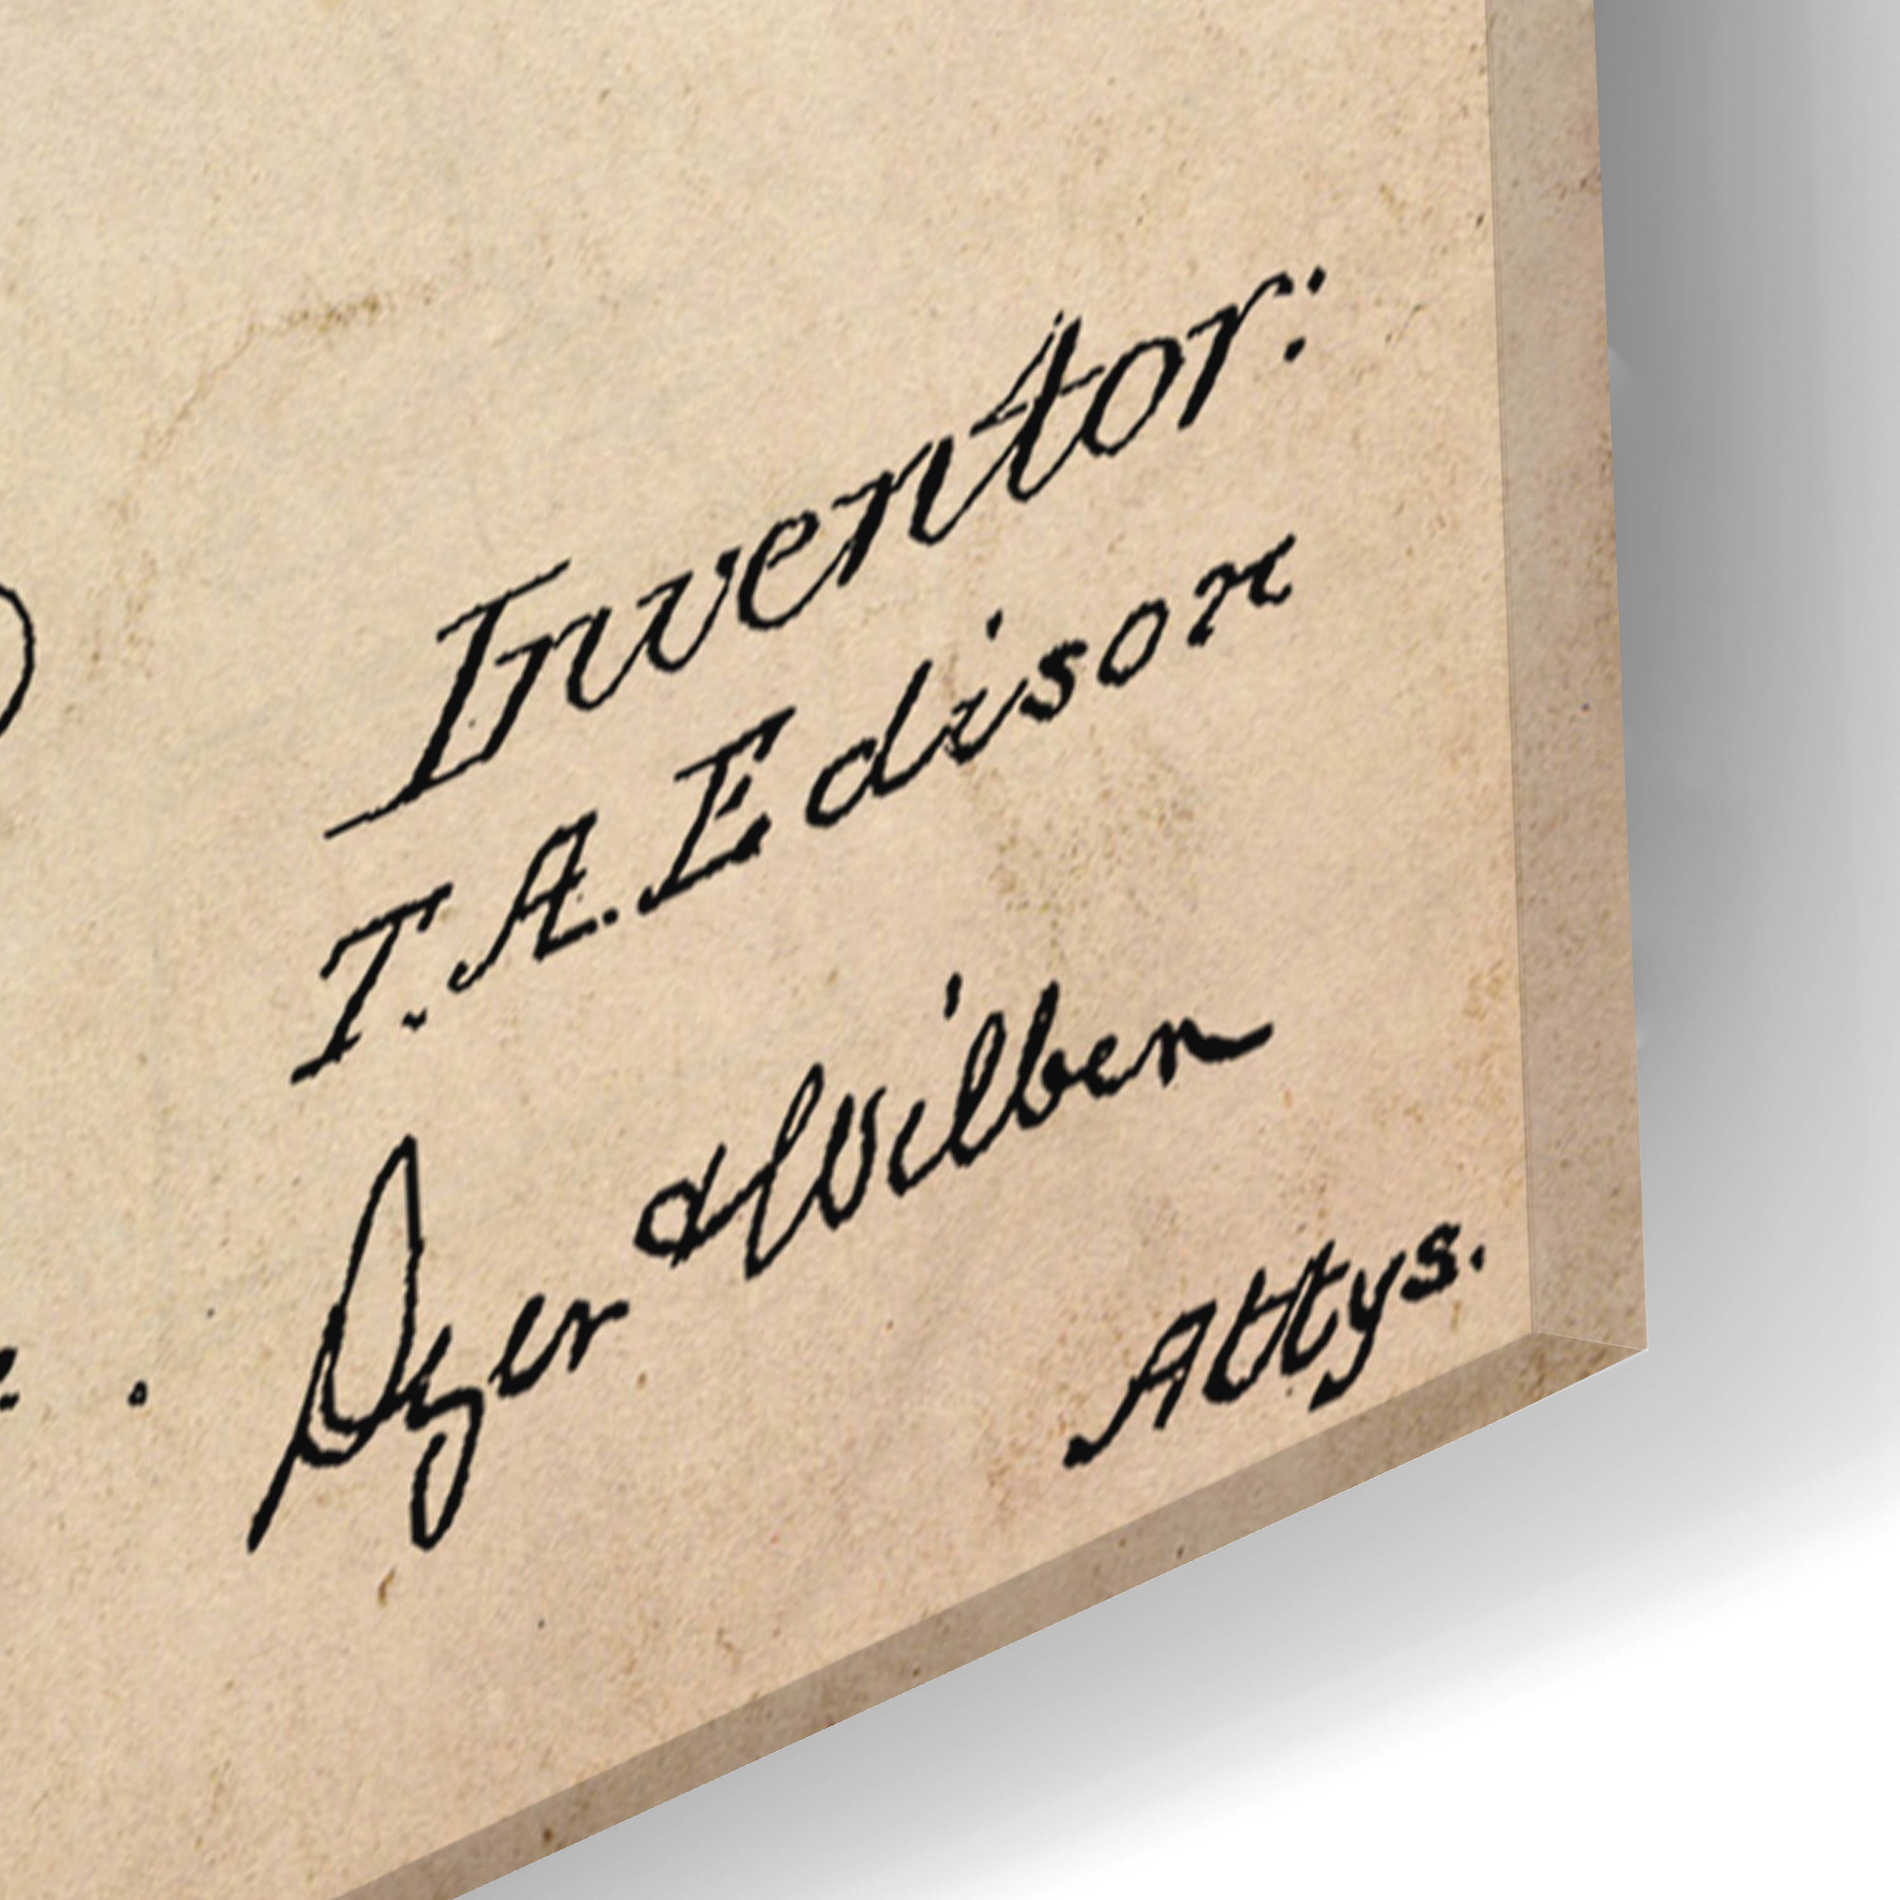 Inventor:
T. A. Edison
Dyer & Wilber
Attys.